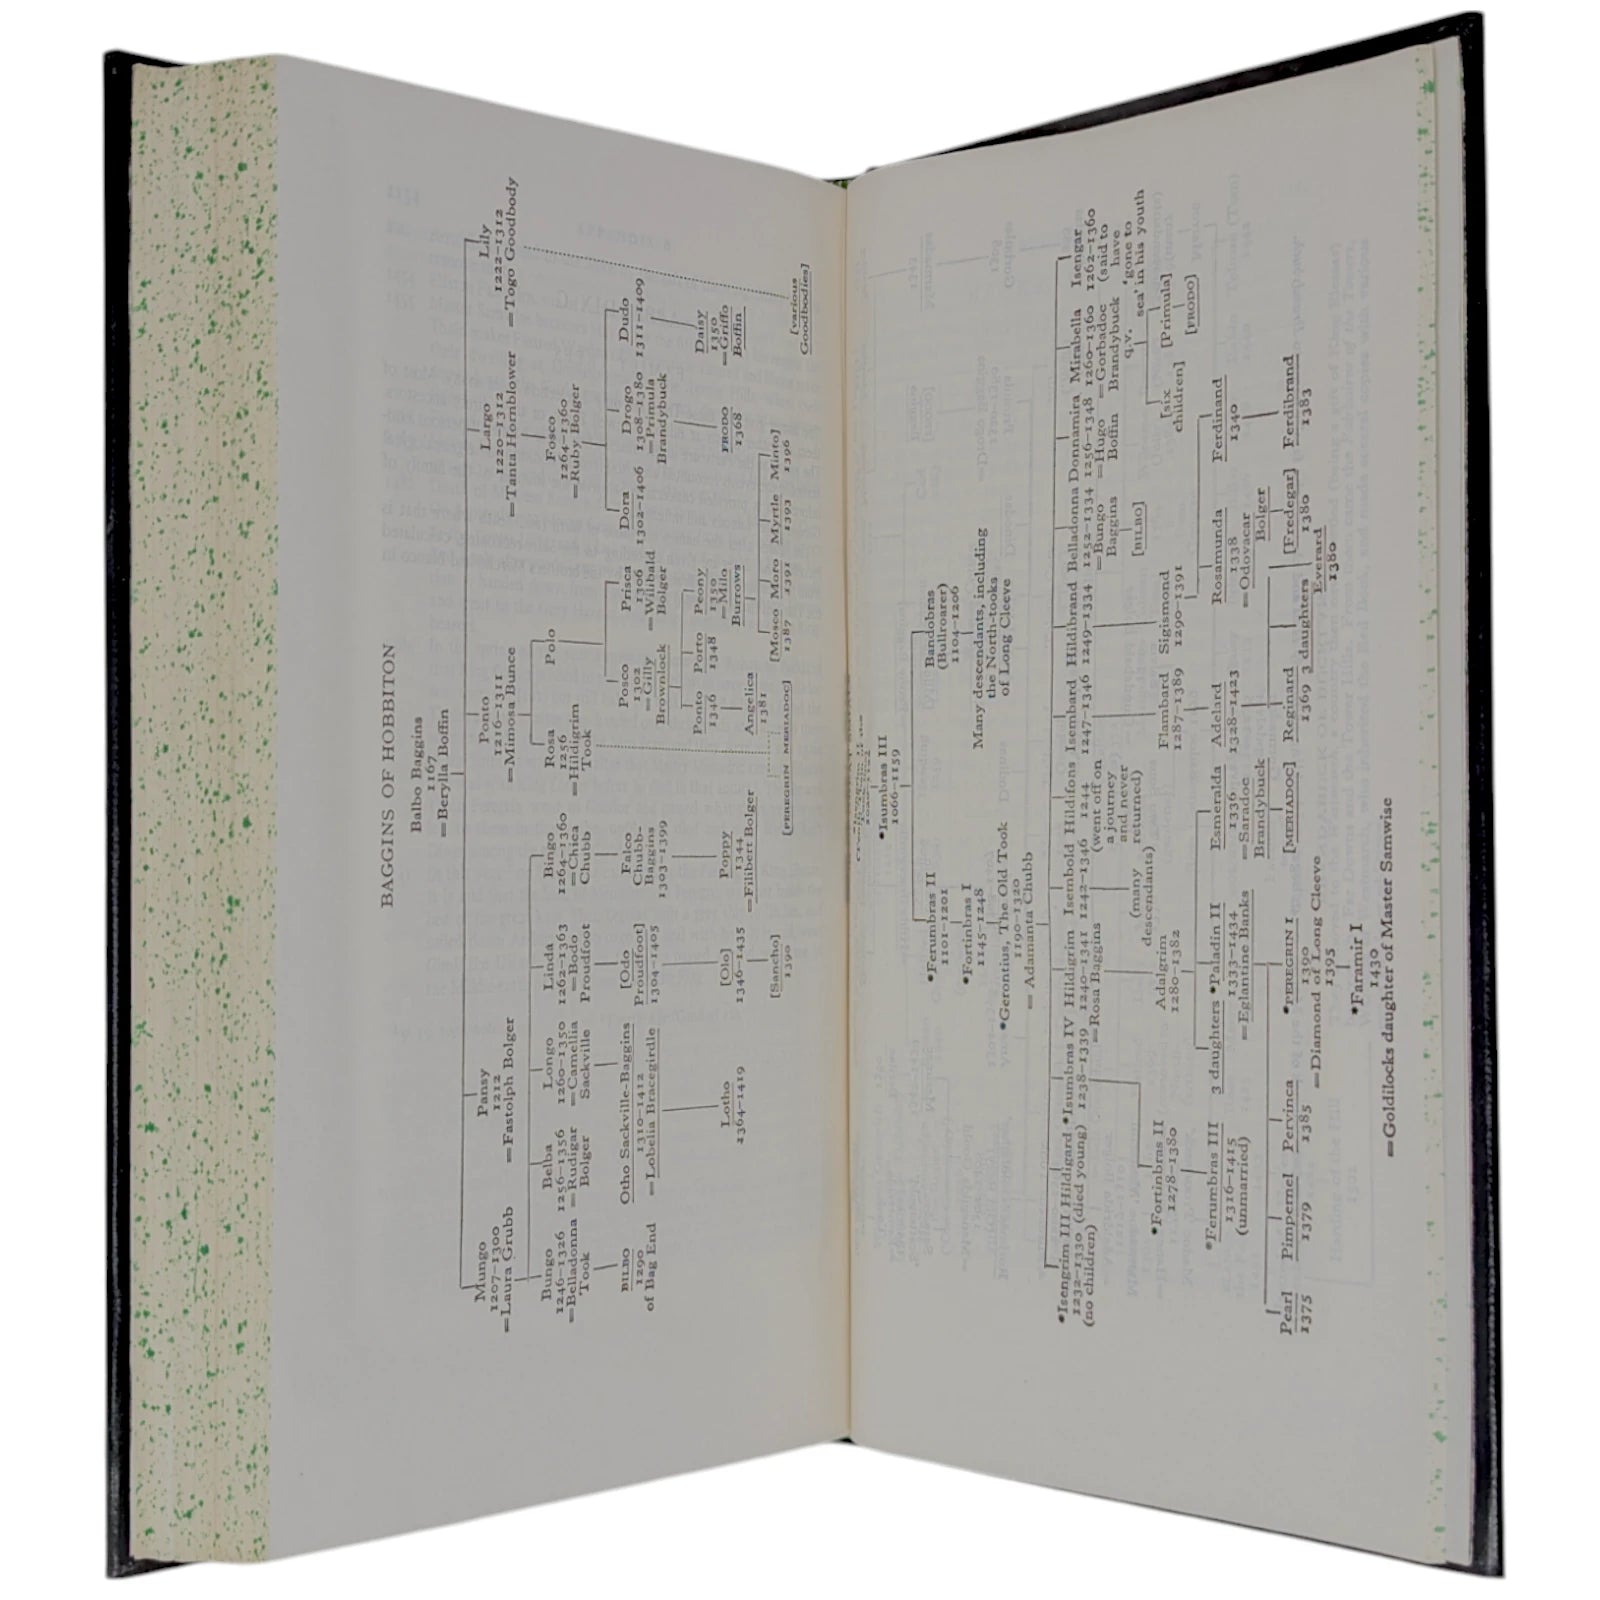 BAGGINS OF HOBBITON
Balbo Baggins
1167
=Berylla Boffin
Mungo
1207–1300
=Laura Grubb
Pansy
1212
=Fastolph Bolger
Ponto
1216–1311
=Mimosa Bunce
Largo
1220–1312
=Tanta Hornblower
Lily
1222–1312
=Togo Goodbody
Bungo
1246–1326
=Belladonna
Took
Belba
1256–1356
=Rudigar
Bolger
Longo
1260–1350
=Camelia
Sackville
Linda
1262–1363
=Bodo
Proudfoot
Bingo
1264–1360
=Chica
Chubb
Rosa
1256
=Hildigrim
Took
Polo
Fosco
1264–1360
=Ruby Bolger
BILBO
1290
of Bag End
Otho Sackville-Baggins
1310–1412
=Lobelia Bracegirdle
[Odo
Proudfoot]
1304–1405
Falco
Chubb-
Baggins
1303–1399
Posco
1302
=Gilly
Brownlock
Prisca
1306
=Wilibald
Bolger
Dora
1302–1406
Drogo
1308–1380
=Primula
Brandybuck
Dudo
1311–1409
Lotho
1364–1419
[Olo]
1346–1435
Poppy
1344
=Filibert Bolger
Ponto
1346
Porto
1348
Peony
1350
=Milo
Burrows
FRODO
1368
Daisy
1350
=Griffo
Boffin
[Sancho]
1390
Angelica
1381
[PEREGRIN
MERIADOC]
[Mosco
1387
Moro
1391
Myrtle
1393
Minto]
1396
[various
Goodbodies]
*Isumbras III
1066–1159
*Ferumbras II
1101–1201
Bandobras
(Bullroarer)
1104–1206
*Fortinbras I
1145–1248
Many descendants, including
the North-tooks
of Long Cleeve
*Gerontius, The Old Took
1190–1320
= Adamanta Chubb
*Isengrim III
1232–1330
(no children)
Hildigard
(died young)
*Isumbras IV
1238–1339
Hildigrim
1240–1341
=Rosa Baggins
Isembold
1242–1346
(many
descendants)
Hildifons
1244
(went off on
a journey
and never
returned)
Isembard
1247–1346
Hildibrand
1249–1334
Belladonna
1252–1334
=Bungo
Baggins
Donnamira
1256–1348
=Hugo
Boffin
Mirabella
1260–1360
=Gorbadoc
Brandybuck
q.v.
Isengar
1262–1360
(said to
have
'gone to
sea' in his youth
[BILBO]
[six
children]
[Primula]
[FRODO]
*Fortinbras II
1278–1380
Adalgrim
1280–1382
Flambard
1287–1389
Sigismond
1290–1391
*Ferumbras III
1316–1415
(unmarried)
3 daughters
*Paladin II
1333–1434
=Eglantine Banks
Esmeralda
1336
=Saradoc
Brandybuck
Adelard
1328–1423
Rosamunda
1338
=Odovacar
Bolger
Ferdinand
1340
Pearl
1375
Pimpernel
1379
Pervinca
1385
*PEREGRIN I
1390
=Diamond of Long Cleeve
1395
[MERIADOC]
Reginard
1369
3 daughters
Everard
1380
[Fredegar]
1380
Ferdibrand
1383
*Faramir I
1430
=Goldilocks daughter of Master Samwise